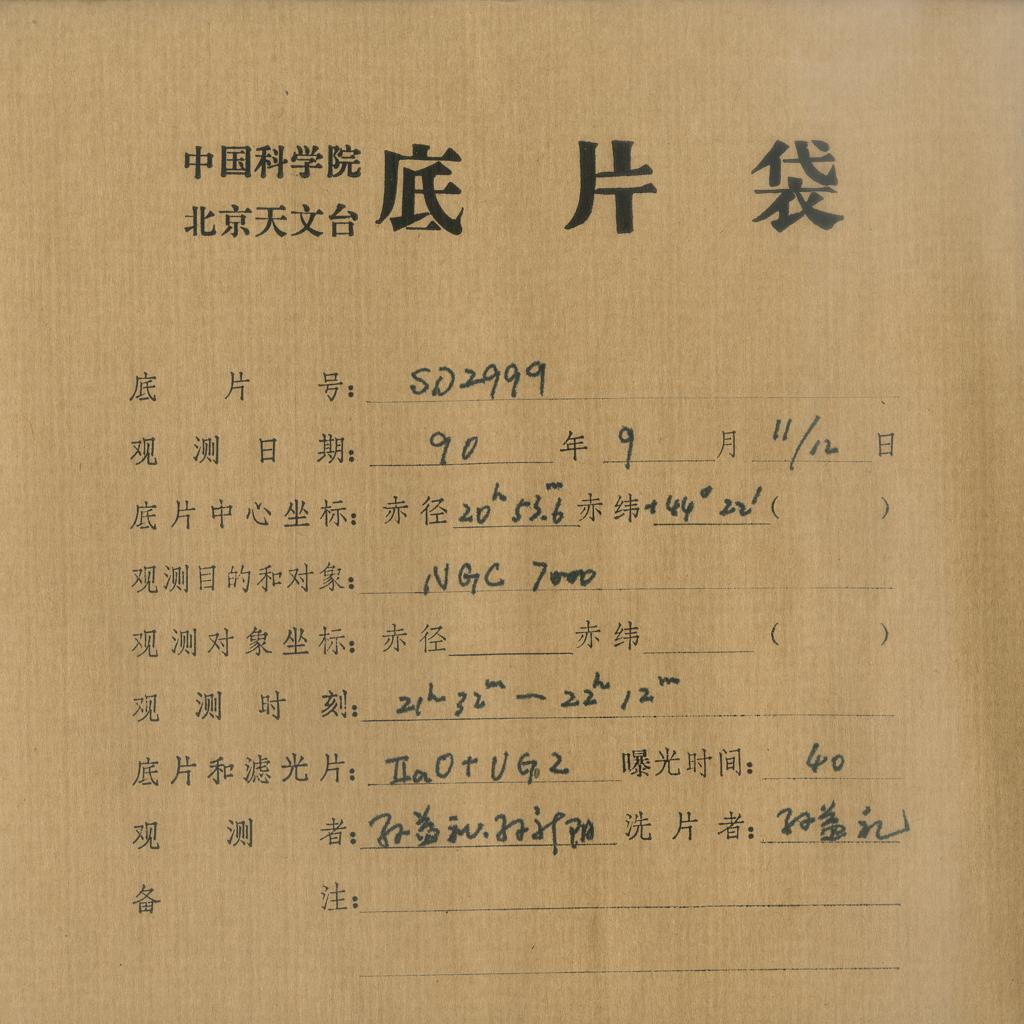 中国科学院
北京天文台 底片袋
底片号: SD2999
观测日期: 90 年 9 月 11/12 日
底片中心坐标: 赤径 20h 53m.6 赤纬 +44° 22' ( )
观测目的和对象: NGC 7000
观测对象坐标: 赤径 赤纬 ( )
观测时刻: 21h 32m — 22h 12m
底片和滤光片: IIaO+UG2 曝光时间: 40
观测者: 孙益礼. 孙 洗片者: 孙益礼
备注: